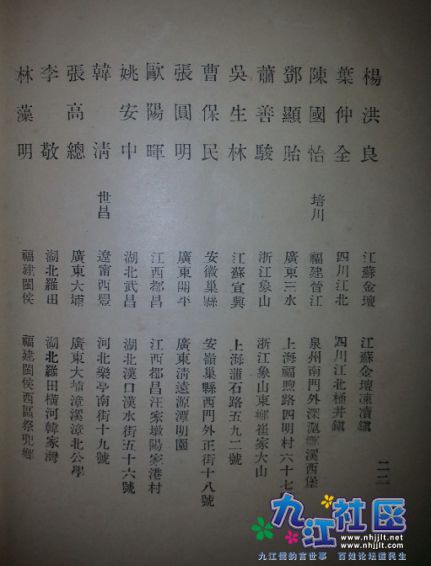 楊洪良 江蘇金壇 江蘇金壇凍瀆鎮
葉仲全 四川江北 四川江北桶井鎮
陳國怡 培川 福建晉江 泉州南門外深滬 溪西堡
鄧顯貽 廣東三水 上海福煦路四明村六十七
蕭善駿 浙江象山 浙江象山東鄉崔家大山
吳生林 江蘇宜興 上海蒲石路五九二號
曹保民 安徽巢縣 安徽巢縣西門外正街十八號
張圓明 廣東開平 廣東清遠源潭明園
歐陽暉 江西都昌 江西都昌汪家墩陽家港村
姚安中 湖北武昌 湖北漢口漢水街五十六號
韓清 世昌 遼甯西豐 河北樂亭南街十九號
張高總 廣東大埔 廣東大埔漳溪漳北公學
李敬 湖北羅田 湖北羅田橫河韓家灣
林藻明 福建閩侯 福建閩侯西區祭兜鄉
二二
九江社区
www.nhjjlt.net
www.nhjjlt.com
九江儒韵言世事 百姓论坛连民生